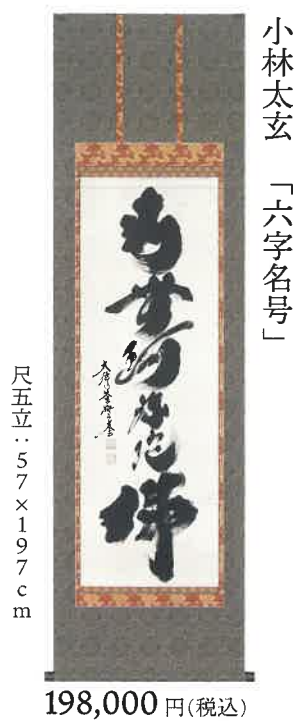 小林太玄 「六字名号」
南無阿弥陀佛
尺五立：57×197cm
198,000円（税込）